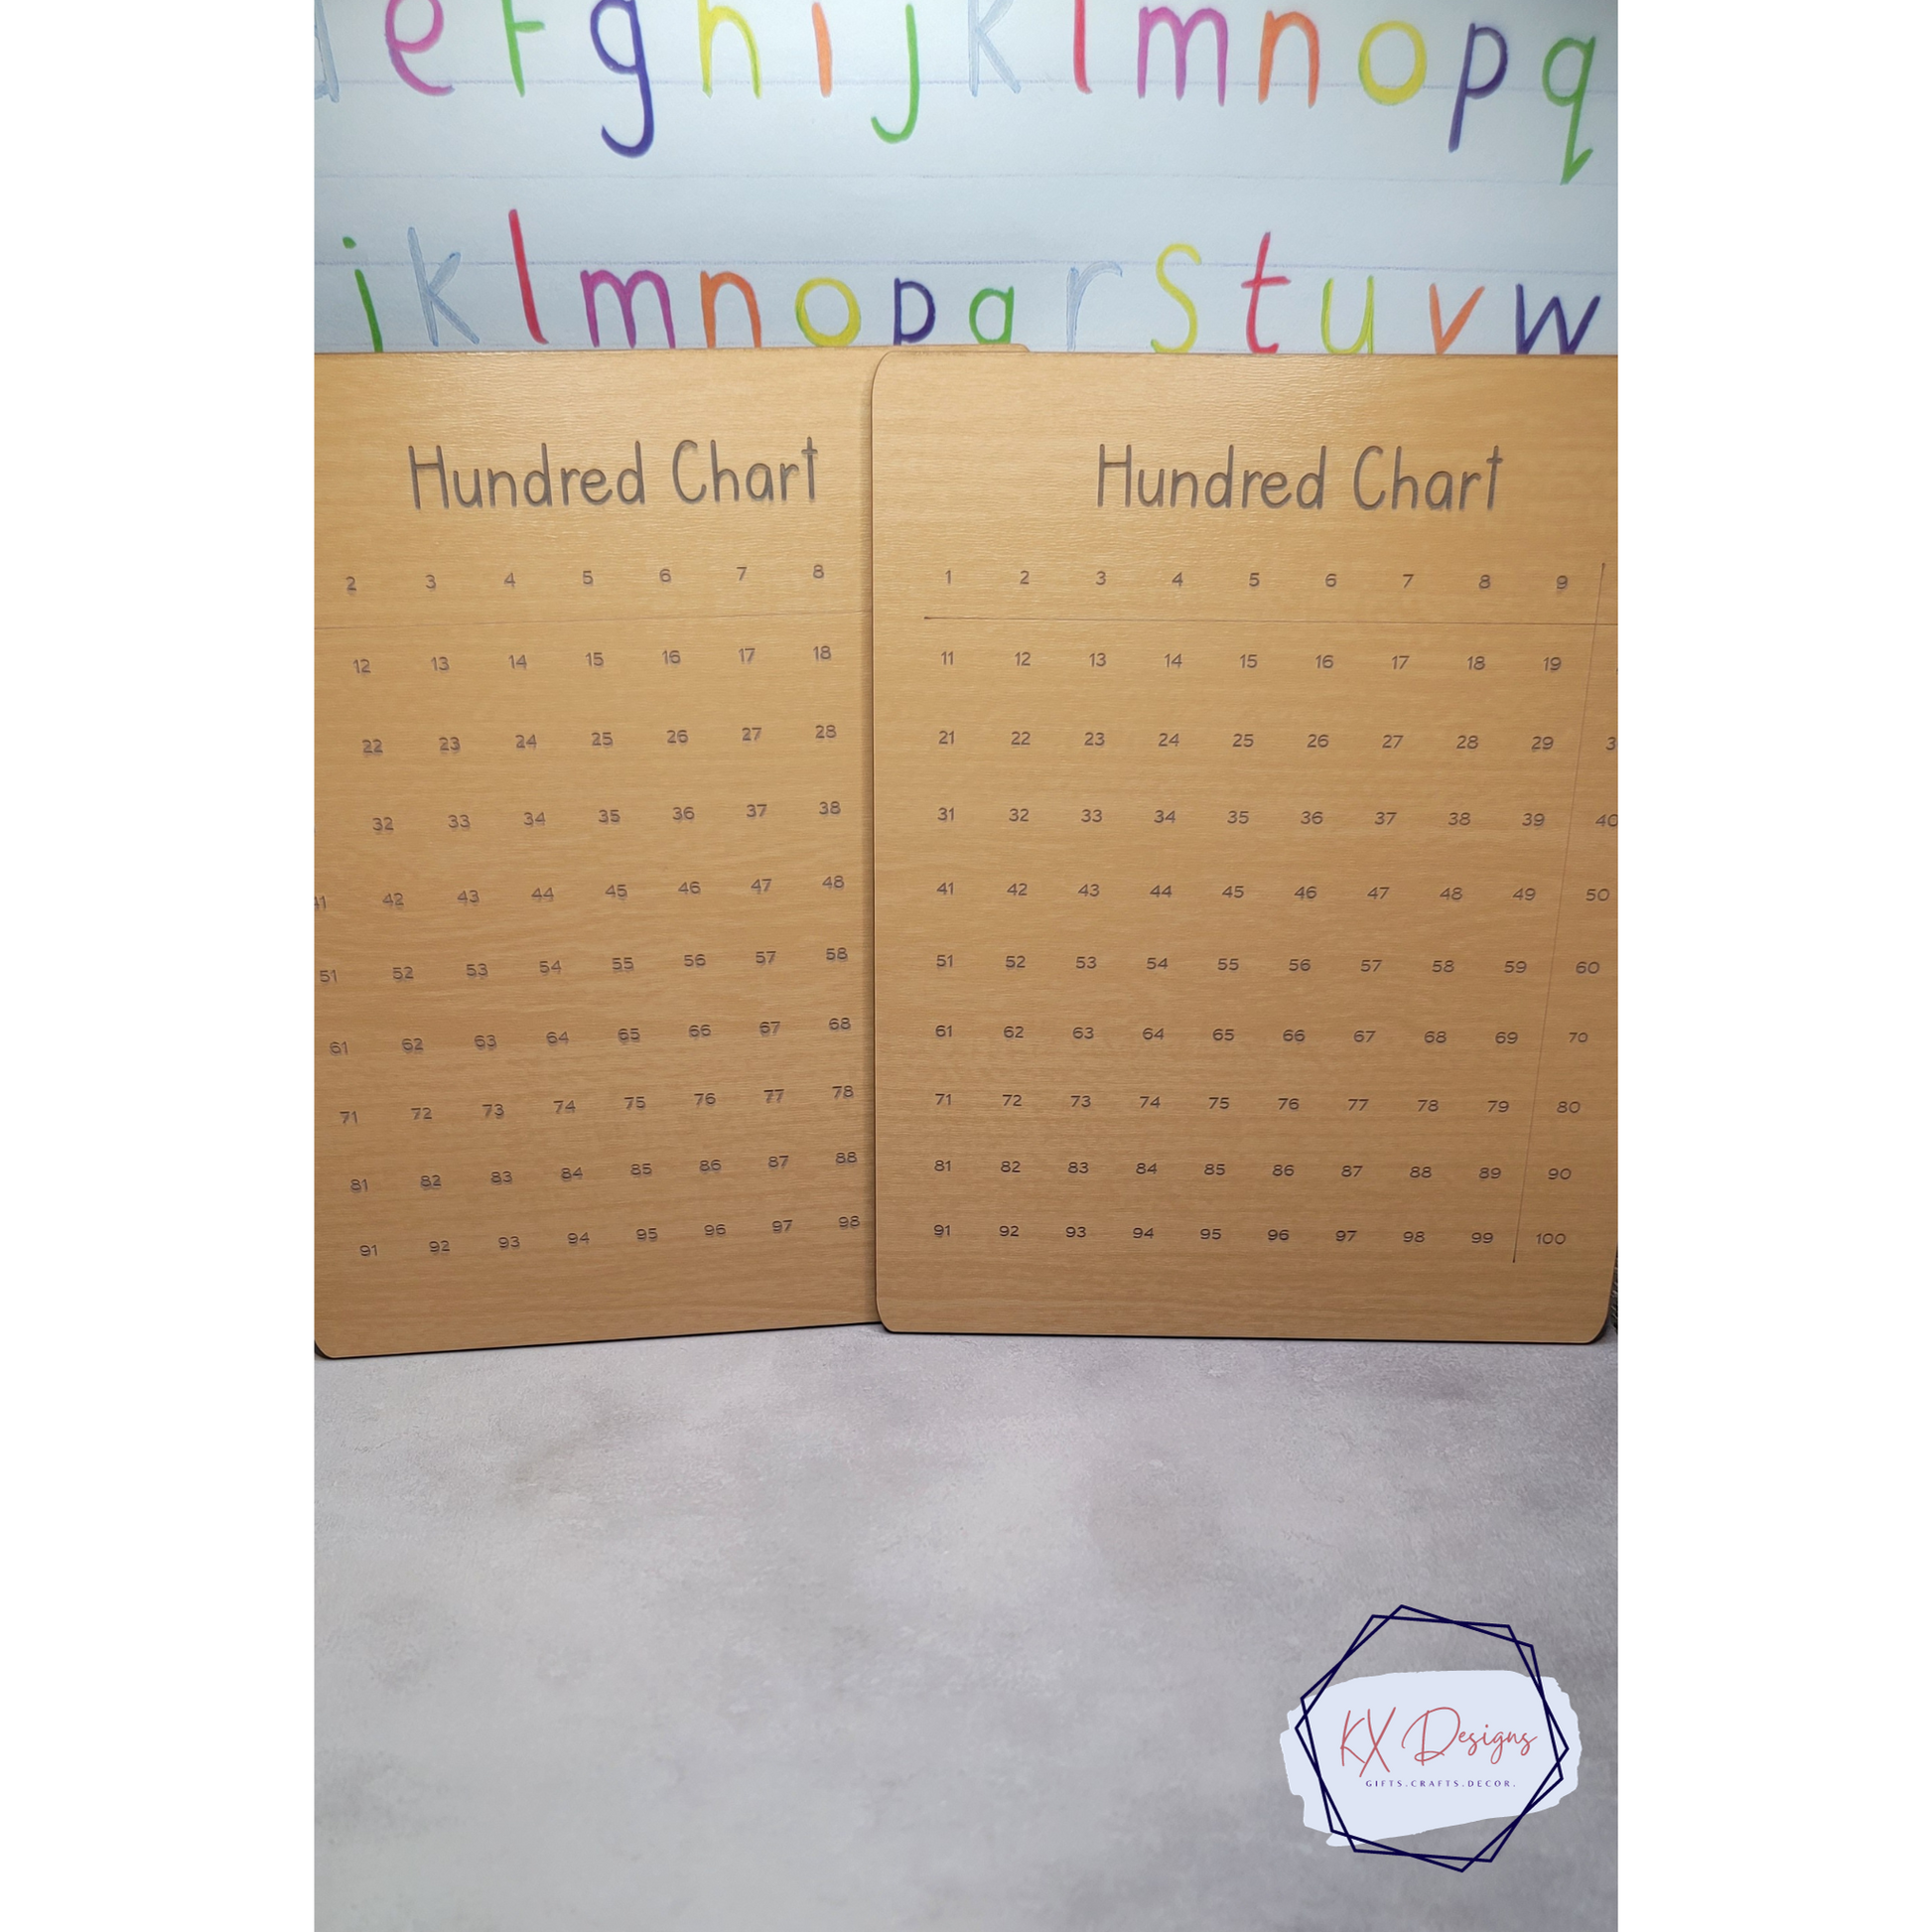 e f g h i j k l m n o p q
j k l m n o p q r s t u v w
Hundred Chart
2 3 4 5 6 7 8
12 13 14 15 16 17 18
22 23 24 25 26 27 28
32 33 34 35 36 37 38
41 42 43 44 45 46 47 48
51 52 53 54 55 56 57 58
61 62 63 64 65 66 67 68
71 72 73 74 75 76 77 78
81 82 83 84 85 86 87 88
91 92 93 94 95 96 97 98
Hundred Chart
1 2 3 4 5 6 7 8 9
11 12 13 14 15 16 17 18 19
21 22 23 24 25 26 27 28 29
31 32 33 34 35 36 37 38 39 40
41 42 43 44 45 46 47 48 49 50
51 52 53 54 55 56 57 58 59 60
61 62 63 64 65 66 67 68 69 70
71 72 73 74 75 76 77 78 79 80
81 82 83 84 85 86 87 88 89 90
91 92 93 94 95 96 97 98 99 100
KX Designs
GIFTS.CRAFTS.DECOR.